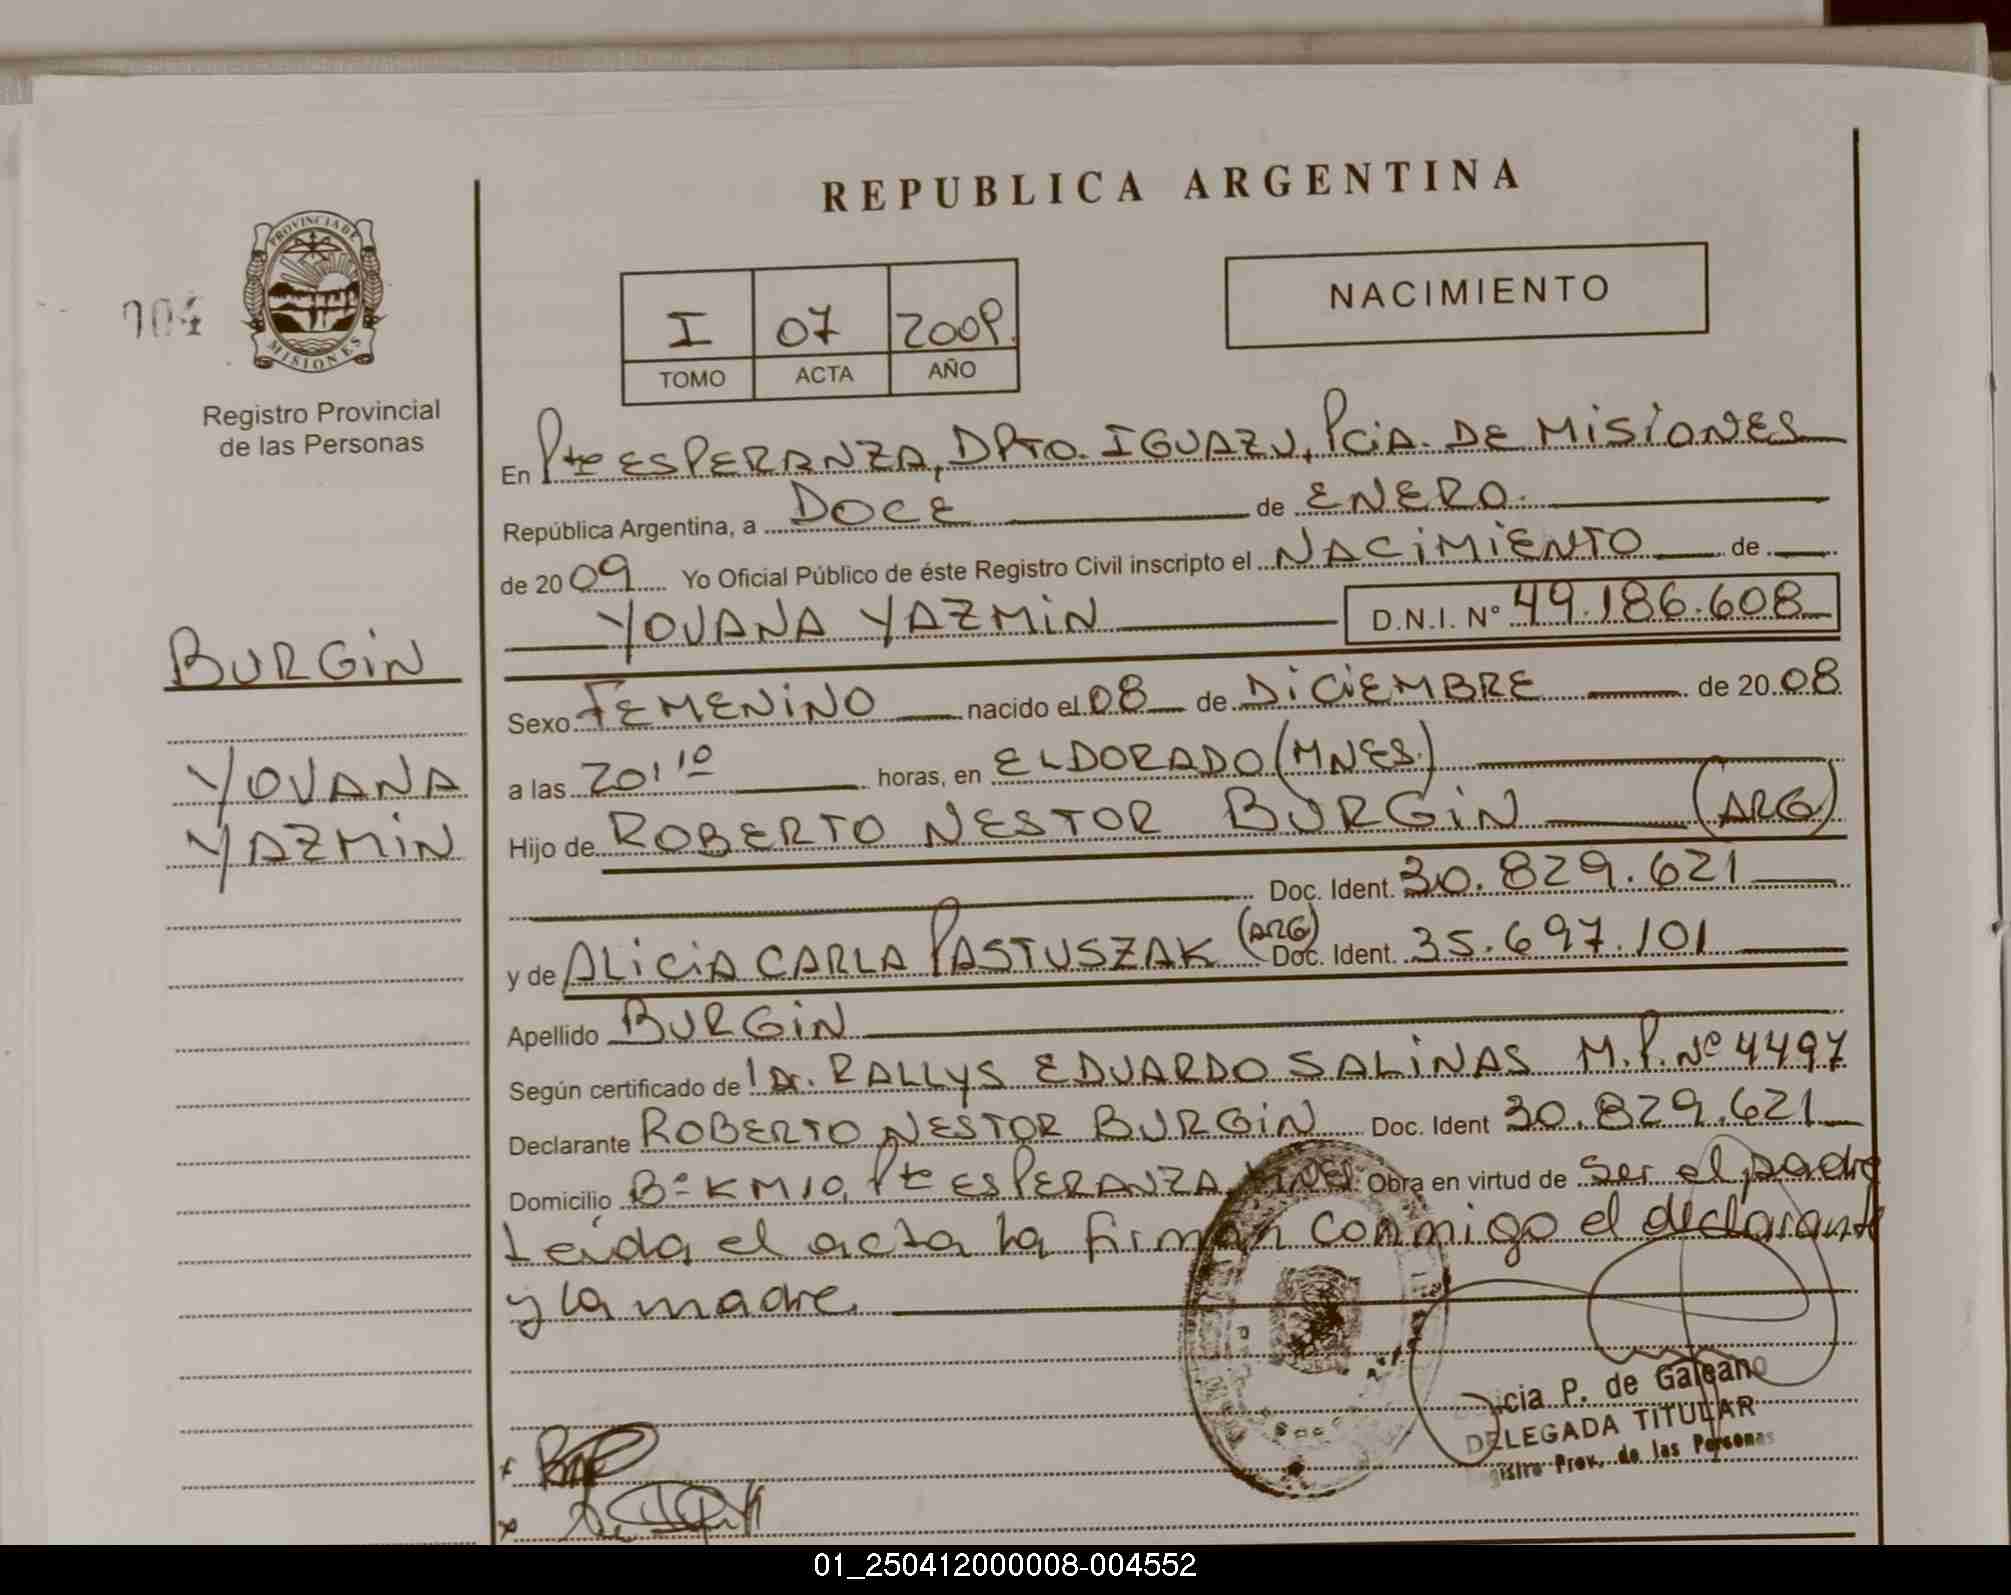 REPUBLICA ARGENTINA
PROVINCIA DE
MISIONES
704
Registro Provincial
de las Personas
I 07 2009.
TOMO ACTA AÑO
NACIMIENTO
En Pto ESPERANZA, DPTO. IGUAZU, PCiA. DE MiSiONES
República Argentina, a DOCE de ENERO.
de 2009 Yo Oficial Público de éste Registro Civil inscripto el NACiMiENTO de
YOVANA YAZMiN D.N.I. N° 49.186.608
BURGiN
YOVANA
YAZMiN
Sexo FEMENiNO nacido el 08 de DiCiEMBRE de 2008
a las 20:10 horas, en ELDORADO (MNES.)
Hijo de ROBERTO NESTOR BURGiN (ARG)
Doc. Ident. 30.829.621
y de ALiCiA CARLA PASTUSZAK (ARG) Doc. Ident. 35.697.101
Apellido BURGiN
Según certificado de Dr. RALLYS EDUARDO SALiNAS M.P. Nº 4497
Declarante ROBERTO NESTOR BURGiN Doc. Ident 30.829.621
Domicilio Bº KM 10, Pto ESPERANZA, MNES. Obra en virtud de ser el padre
Leida el acta la firman conmigo el declarante
y la madre.
P. de Galeano
DELEGADA TITULAR
Prov. de las Personas
01_250412000008-004552